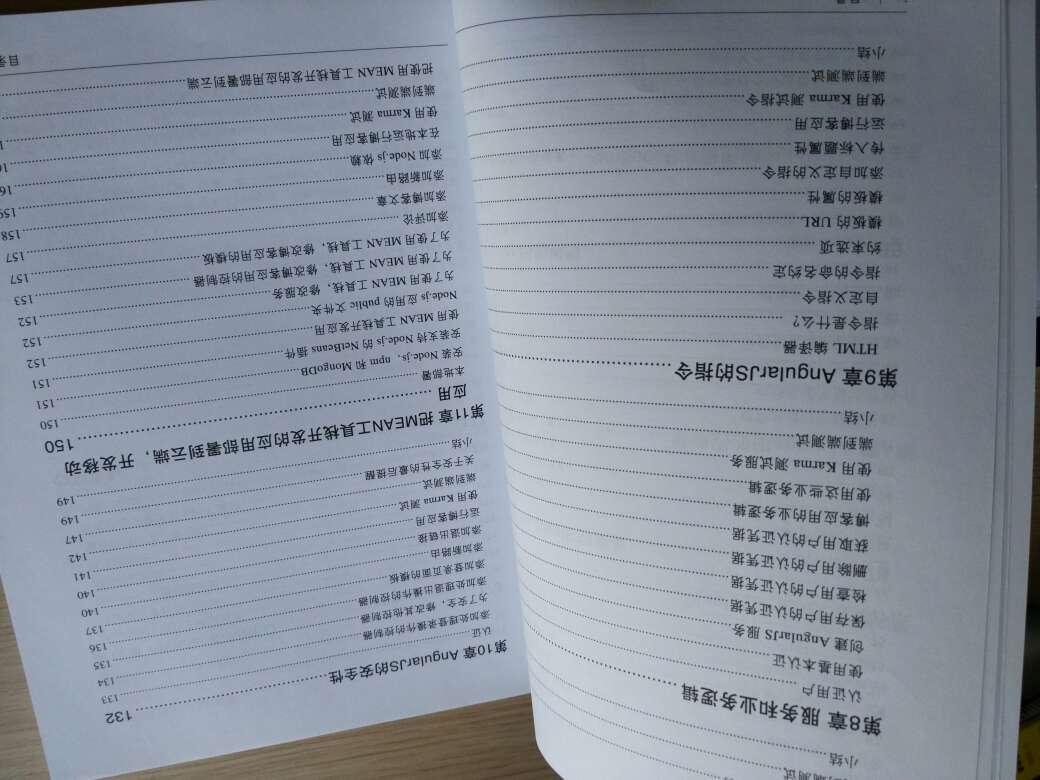 端到端测试
小结
第8章 服务和业务逻辑
认证用户
使用基本认证
创建 AngularJS 服务
保存用户的认证凭据
检查用户的认证凭据
删除用户的认证凭据
获取用户的认证凭据
博客应用的业务逻辑
使用这些业务逻辑
使用 Karma 测试服务
端到端测试
小结
第9章 AngularJS的指令
HTML 编译器
指令是什么?
自定义指令
指令的命名约定
约束选项
模板的 URL
模板的属性
添加自定义的指令
传入标题属性
运行博客应用
使用 Karma 测试指令
端到端测试
小结
第10章 AngularJS的安全性 132
认证 133
添加处理登录操作的控制器 134
为了安全,修改其他控制器 135
添加处理退出操作的控制器 136
添加登录页面的模板 137
添加新路由 140
添加退出链接 140
运行博客应用 141
使用 Karma 测试 142
端到端测试 147
关于安全性的最后提醒 149
小结 149
第11章 把MEAN工具栈开发的应用部署到云端,开发移动
应用 150
本地部署 150
安装 Node.js、npm 和 MongoDB 151
安装支持 Node.js 的 NetBeans 插件 151
使用 MEAN 工具栈开发应用 152
Node.js 应用的 public 文件夹 152
为了使用 MEAN 工具栈,修改服务 152
为了使用 MEAN 工具栈,修改博客应用的控制器 153
为了使用 MEAN 工具栈,修改博客应用的模板 157
添加评论 157
添加博客文章 158
添加新路由 159
添加 Node.js 依赖
在本地运行博客应用
使用 Karma 测试
端到端测试
把使用 MEAN 工具栈开发的应用部署到云端